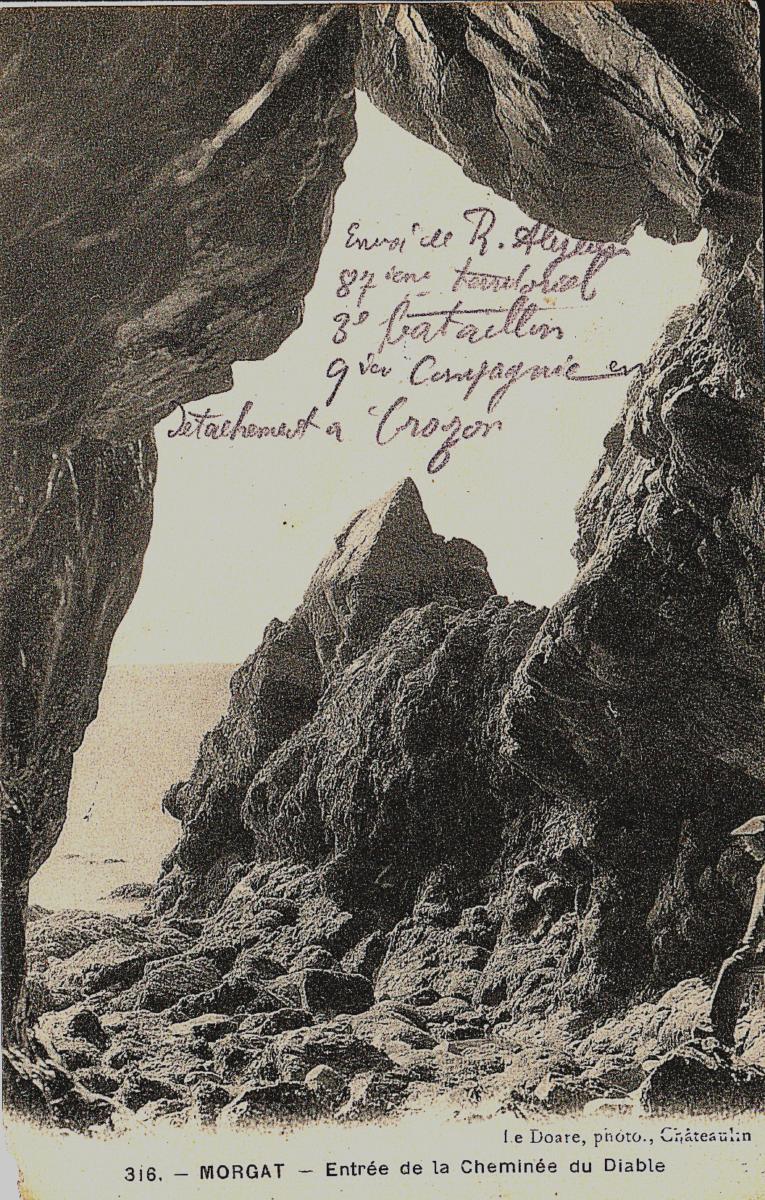 Envoi de R.
87 ième territorial
3e bataillon
9 ième Compagnie en
Detachement a Crozon
Le Doare, photo., Châteaulin
316. – MORGAT – Entrée de la Cheminée du Diable